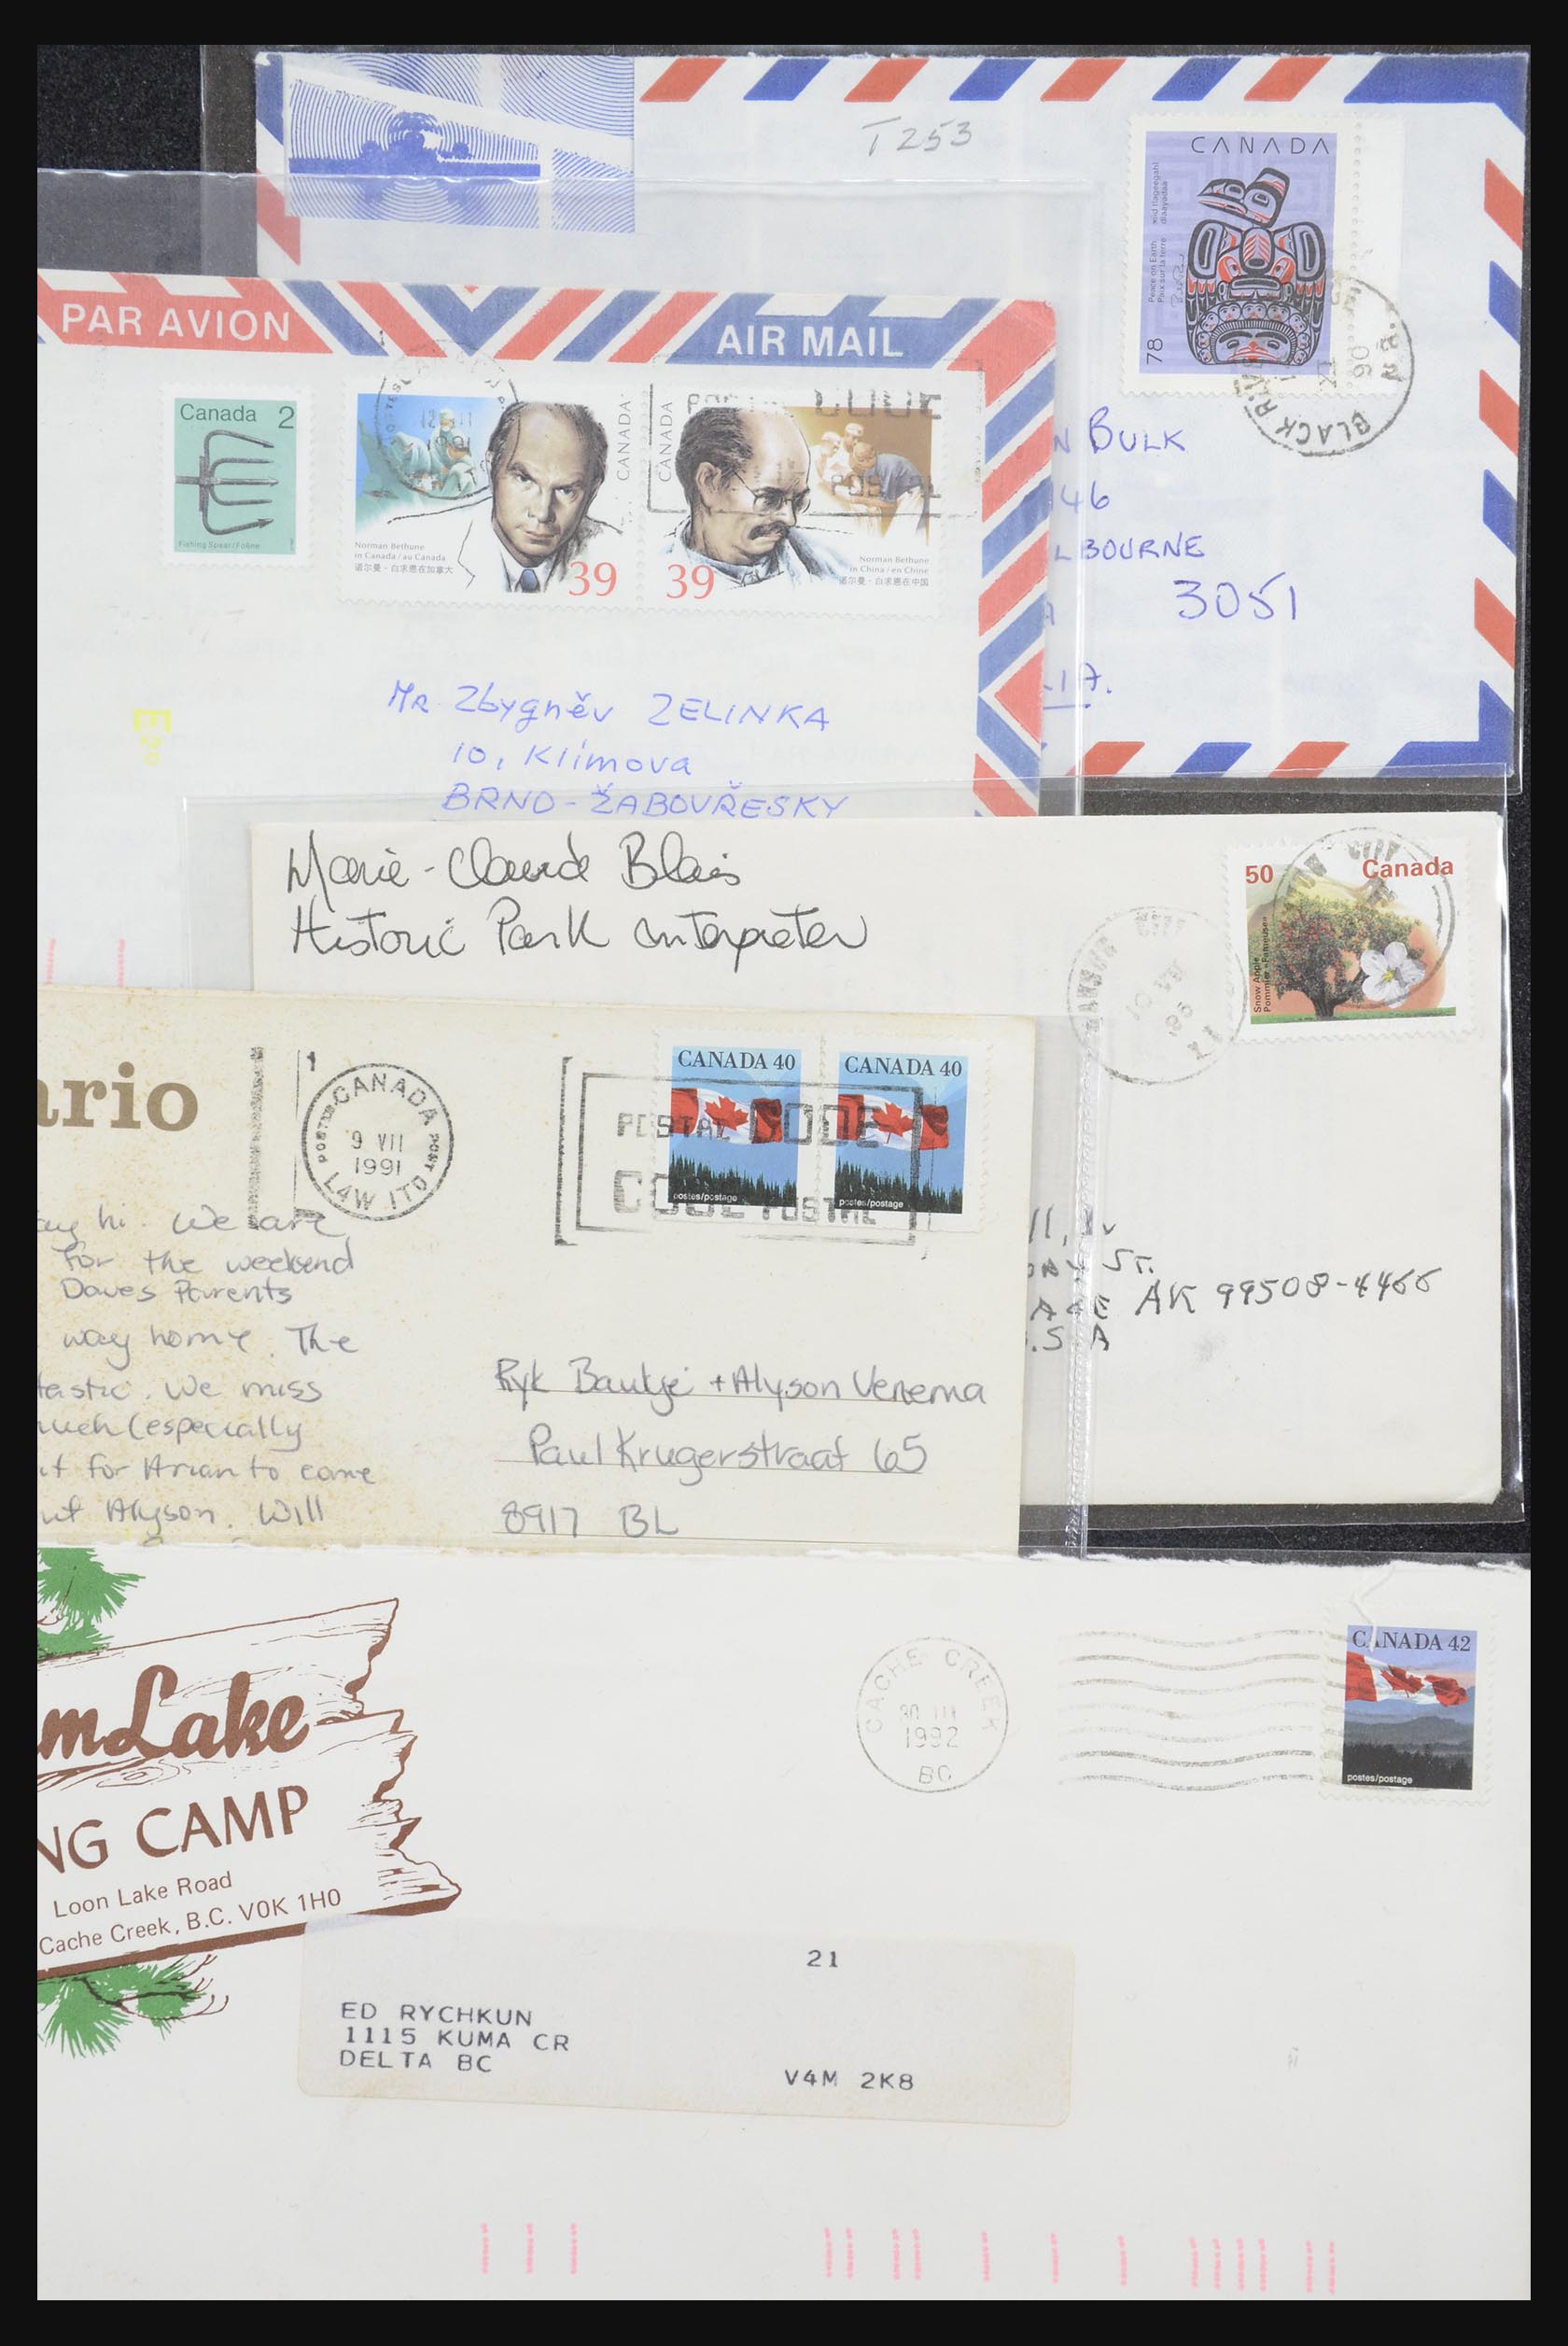 T253
CANADA
78
Peace on Earth
Paix sur la terre
BLACK
06
N BULK
46
LBOURNE
3051
PAR AVION
AIR MAIL
Canada 2
Fishing Spear/Foëne
CANADA
CANADA
Norman Bethune
in Canada/au Canada
诺尔曼·白求恩在加拿大
39
39
Norman Bethune
in China/en Chine
诺尔曼·白求恩在中国
1991
POSTAL CODE
POSTAL
Mr Zbygněv ZELINKA
10, Klímova
BRNO - ŽABOVŘESKY
Marie-Claude Blais
Historic Park Interpreter
50 Canada
Snow Apple
Pommier «Fameuse»
ST.
AK 99508-4466
.S A
ario
CANADA
9 VII
1991
L4W 1T0
CANADA 40
CANADA 40
postes/postage
postes/postage
POSTAL CODE
CODE POSTAL
ay hi. We are
for the weekend
Daves Parents
way home. The
tastic. We miss
much (especially
ut for Arian to come
ut Alyson. Will
Ryk Bautje + Alyson Venema
Paul Krugerstraat 65
8917 BL
CACHE CREEK
30 III
1992
BC
CANADA 42
postes/postage
m Lake
NG CAMP
Loon Lake Road
Cache Creek, B.C. V0K 1H0
21
ED RYCHKUN
1115 KUMA CR
DELTA BC
V4M 2K8